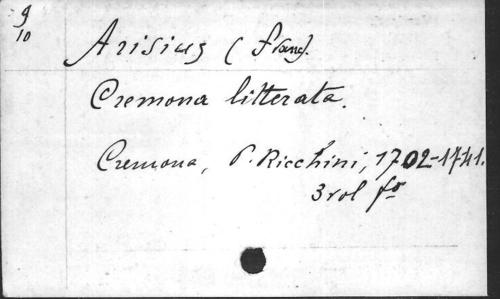 9
10
Arisius (Franc).
Cremona litterata.
Cremona, P. Ricchini, 1702-1741.
3 vol fo